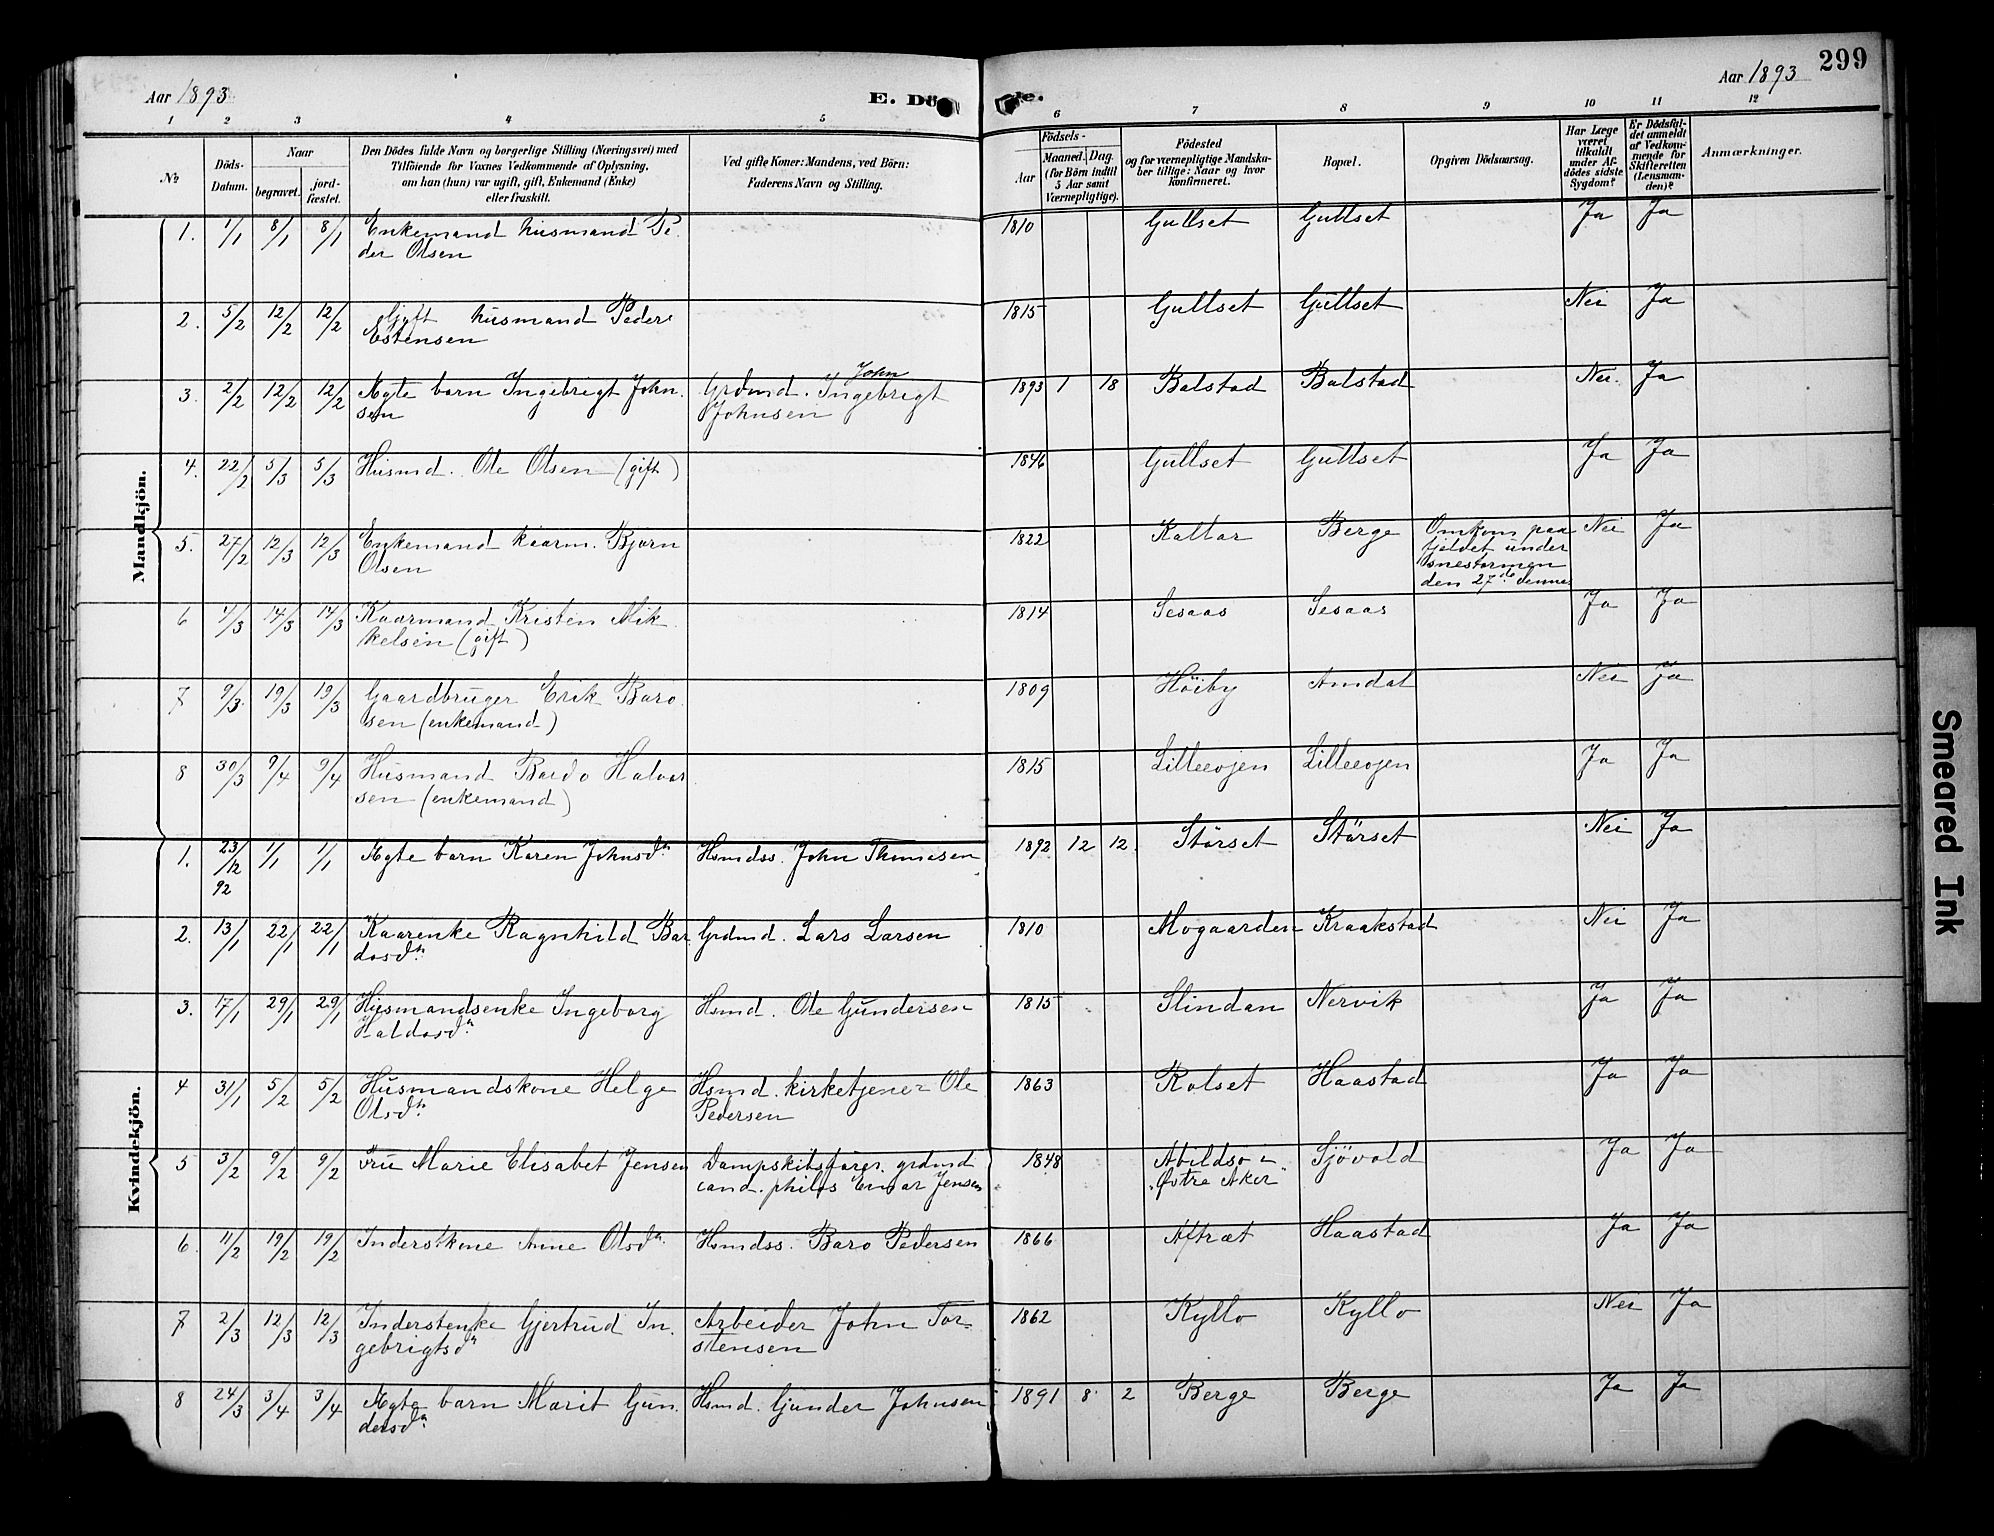 Aar 1893
E. Dö
de.
Aar 1893
299
1 2 3 4 5 6 7 8 9 10 11 12
No
Döds-Datum.
Naar
begravet.
jord-fæstet.
Den Dödes fulde Navn og borgerlige Stilling (Næringsvei) med
Tilföiende for Voxnes Vedkommende af Oplysning,
om han (hun) var ugift, gift, Enkemand (Enke)
eller fraskilt.
Ved gifte Koner: Mandens, ved Börn:
Faderens Navn og Stilling.
Födsels-
Aar
Maaned. Dag.
(for Börn indtil
5 Aar samt
Værnepligtige).
Födested
og for værnepligtige Mandska-
ber tillige: Naar og hvor
konfirmeret.
Bopæl.
Opgiven Dödsaarsag.
Har Læge
været
tilkaldt
under Af-
dödes sidste
Sygdom?
Er Dödsfal-
det anmeldt
af Vedkom-
mende for
Skifteretten
(Lensman-
den)?
Anmærkninger.
Mandkjön.
1. 1/1 8/1 8/1 Enkemand husmand Pe- 1810 Gullset Gullset Ja Ja
der Olsen
2. 5/2 12/2 12/2 Gift husmand Peder 1815 Gullset Gullset Nei Ja
Estensen
John
3. 2/2 12/2 12/2 Ægte barn Ingebrigt John- Grdmd. Ingebrigt 1893 1 18 Balstad Balstad Nei. Ja
sen Johnsen
4. 22/2 5/3 5/3 Husmd. Ole Olsen (gift) 1846 Gullset Gullset Ja Ja
5. 27/2 12/3 12/3 Enkemand kaarm. Bjørn 1822 Kaltar Berge Omkom paa Nei Ja
Olsen fjeldet under
snestormen
den 27de dennes
6 4/3 14/3 14/3 Kaarmand Kristen Mik- 1814 Sesaas Sesaas Ja Ja
kelsen (gift)
7 9/3 19/3 19/3 Gaardbruger Erik Baro- 1809 Höiby Amdal Nei Ja
sen (enkemand)
8 30/3 9/4 9/4 Husmand Bardo Halvor- 1815 Lilleevjen Lilleevjen Ja Ja
sen (enkemand)
Kvindekjön.
1. 23/12 92 1/1 1/1 Ægte barn Karen Johnsdtr Hsmdss. John Thomesen 1892 12 12. Störset Störset Nei Ja
2. 13/1 22/1 22/1 Kaarenke Ragnhild Bar- Grdmd. Lars Larsen 1810 Mogaarden Kraakstad Nei Ja
dosdtr
3. 17/1 29/1 29/1 Husmandsenke Ingeborg Hsmd. Ole Gundersen 1815 Slindan Nervik Ja Ja
Haldosdtr
4 31/1 5/2 5/2 Husmandskone Helge Hsmd. kirketjener Ole 1863 Rolset Haastad Ja Ja
Olsdtr Pedersen
5 3/2 9/2 9/2 Fru Marie Elisabet Jensen Dampskibsfører. grdmd 1848 Abildsø i Sjövold Ja Ja
cand. philos Einar Jensen Østre Aker
6. 11/2 19/2 19/2 Inderstkone Anne Olsdtr Hsmdss. Baro Pedersen 1866 Aftræt Haastad Ja Ja
7 2/3 12/3 12/3 Inderstenke Gjertrud In- Arbeider John Tor- 1862 Kyllo Kyllo Nei Ja
gebrigtsdtr stensen
8 24/3 3/4 3/4 Ægte barn Marit Gun- Hsmd. Gunder Johnsen 1891 8 2 Berge Berge Ja Ja
dersdtr
Smeared Ink